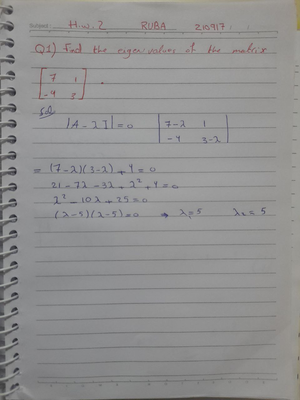 Subject: H.W. 2 RUBA 210917
Q1) Find the eigen values of the matrix
[ 7 1
-4 3 ] .
Sol
|A - λI| = 0 | 7-λ 1
-4 3-λ |
= (7-λ)(3-λ) + 4 = 0
21 - 7λ - 3λ + λ² + 4 = 0
λ² - 10λ + 25 = 0
(λ-5)(λ-5) = 0 ⇒ λ = 5 λ₂ = 5